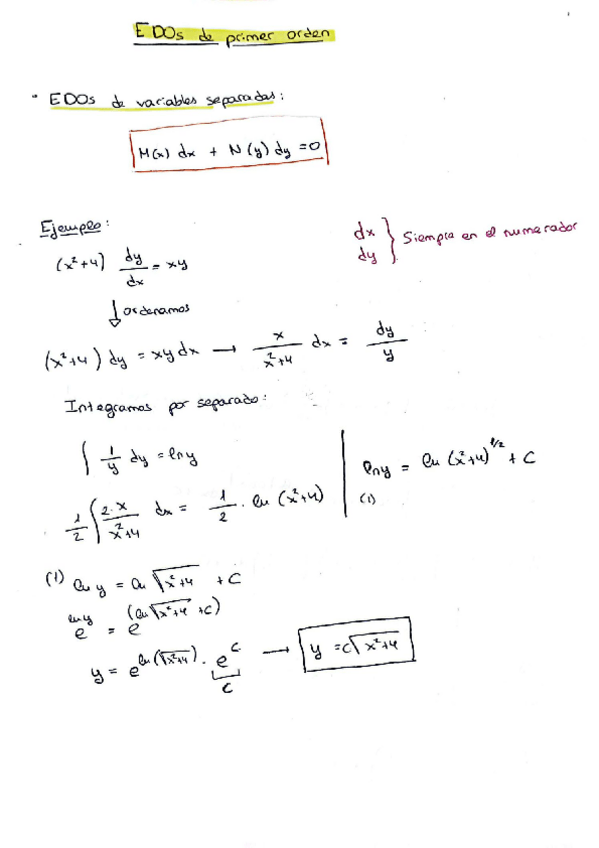 EDOs de primer orden
• EDOs de variables separadas:
M(x) dx + N(y) dy = 0
Ejemplo:
dx
dy } Siempre en el numerador
(x²+4) dy/dx = xy
↓ ordenamos
(x²+4) dy = xy dx → x/(x²+4) dx = dy/y
Integramos por separado:
∫ 1/y dy = ln y
1/2 ∫ 2·x/(x²+4) dx = 1/2 · ln (x²+4)
ln y = ln (x²+4)^1/2 + C
(1)
(1) ln y = ln √(x²+4) + C
e^(ln y) = e^(ln √(x²+4) + C)
y = e^(ln(√(x²+4))) · e^C → y = C√(x²+4)
C